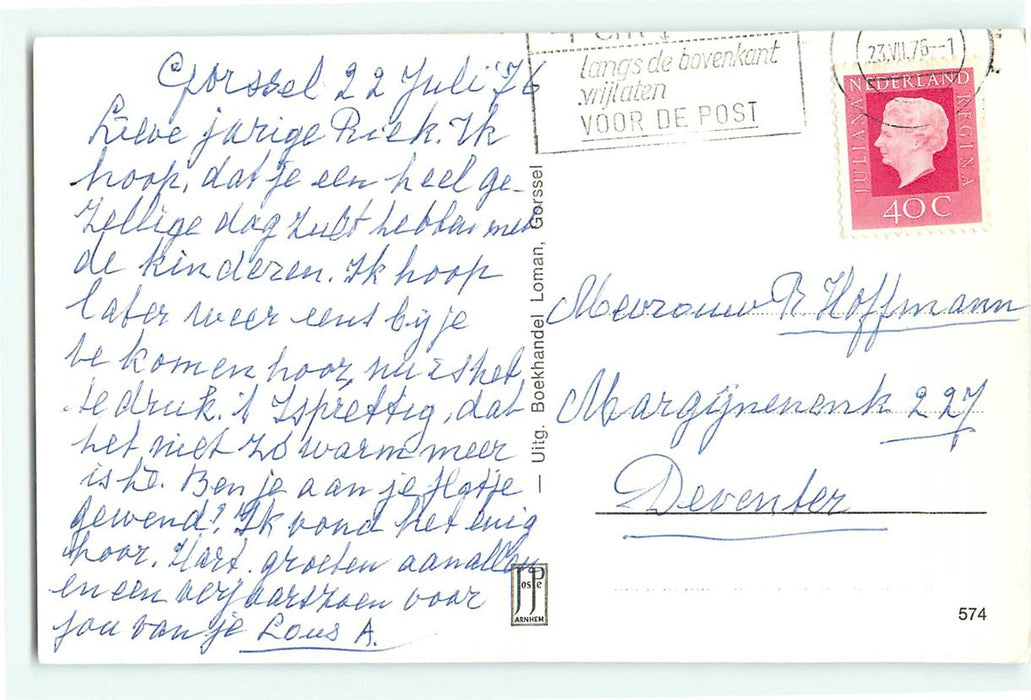 Gorssel 22 Juli '76
Lieve jarige Riek. Ik
hoop, dat je een heel ge-
zellige dag zult hebben met
de kinderen. Ik hoop
later weer eens bij je
te komen hoor, nu is het
te druk. 't Is prettig, dat
het niet zo warm meer
is hè. Ben je aan je flatje
gewend? Ik vond het enig
hoor. Hart. groeten aan allen
en een verjaarszoen voor
jou van je Lous A.
langs de bovenkant
vrijlaten
VOOR DE POST
23.VII.76--1
NEDERLAND
JULIANA
REGINA
40C
— Uitg. Boekhandel Loman, Gorssel
Mevrouw R Hoffmann
Margijnenenk 227
Deventer
JosPe
ARNHEM
574